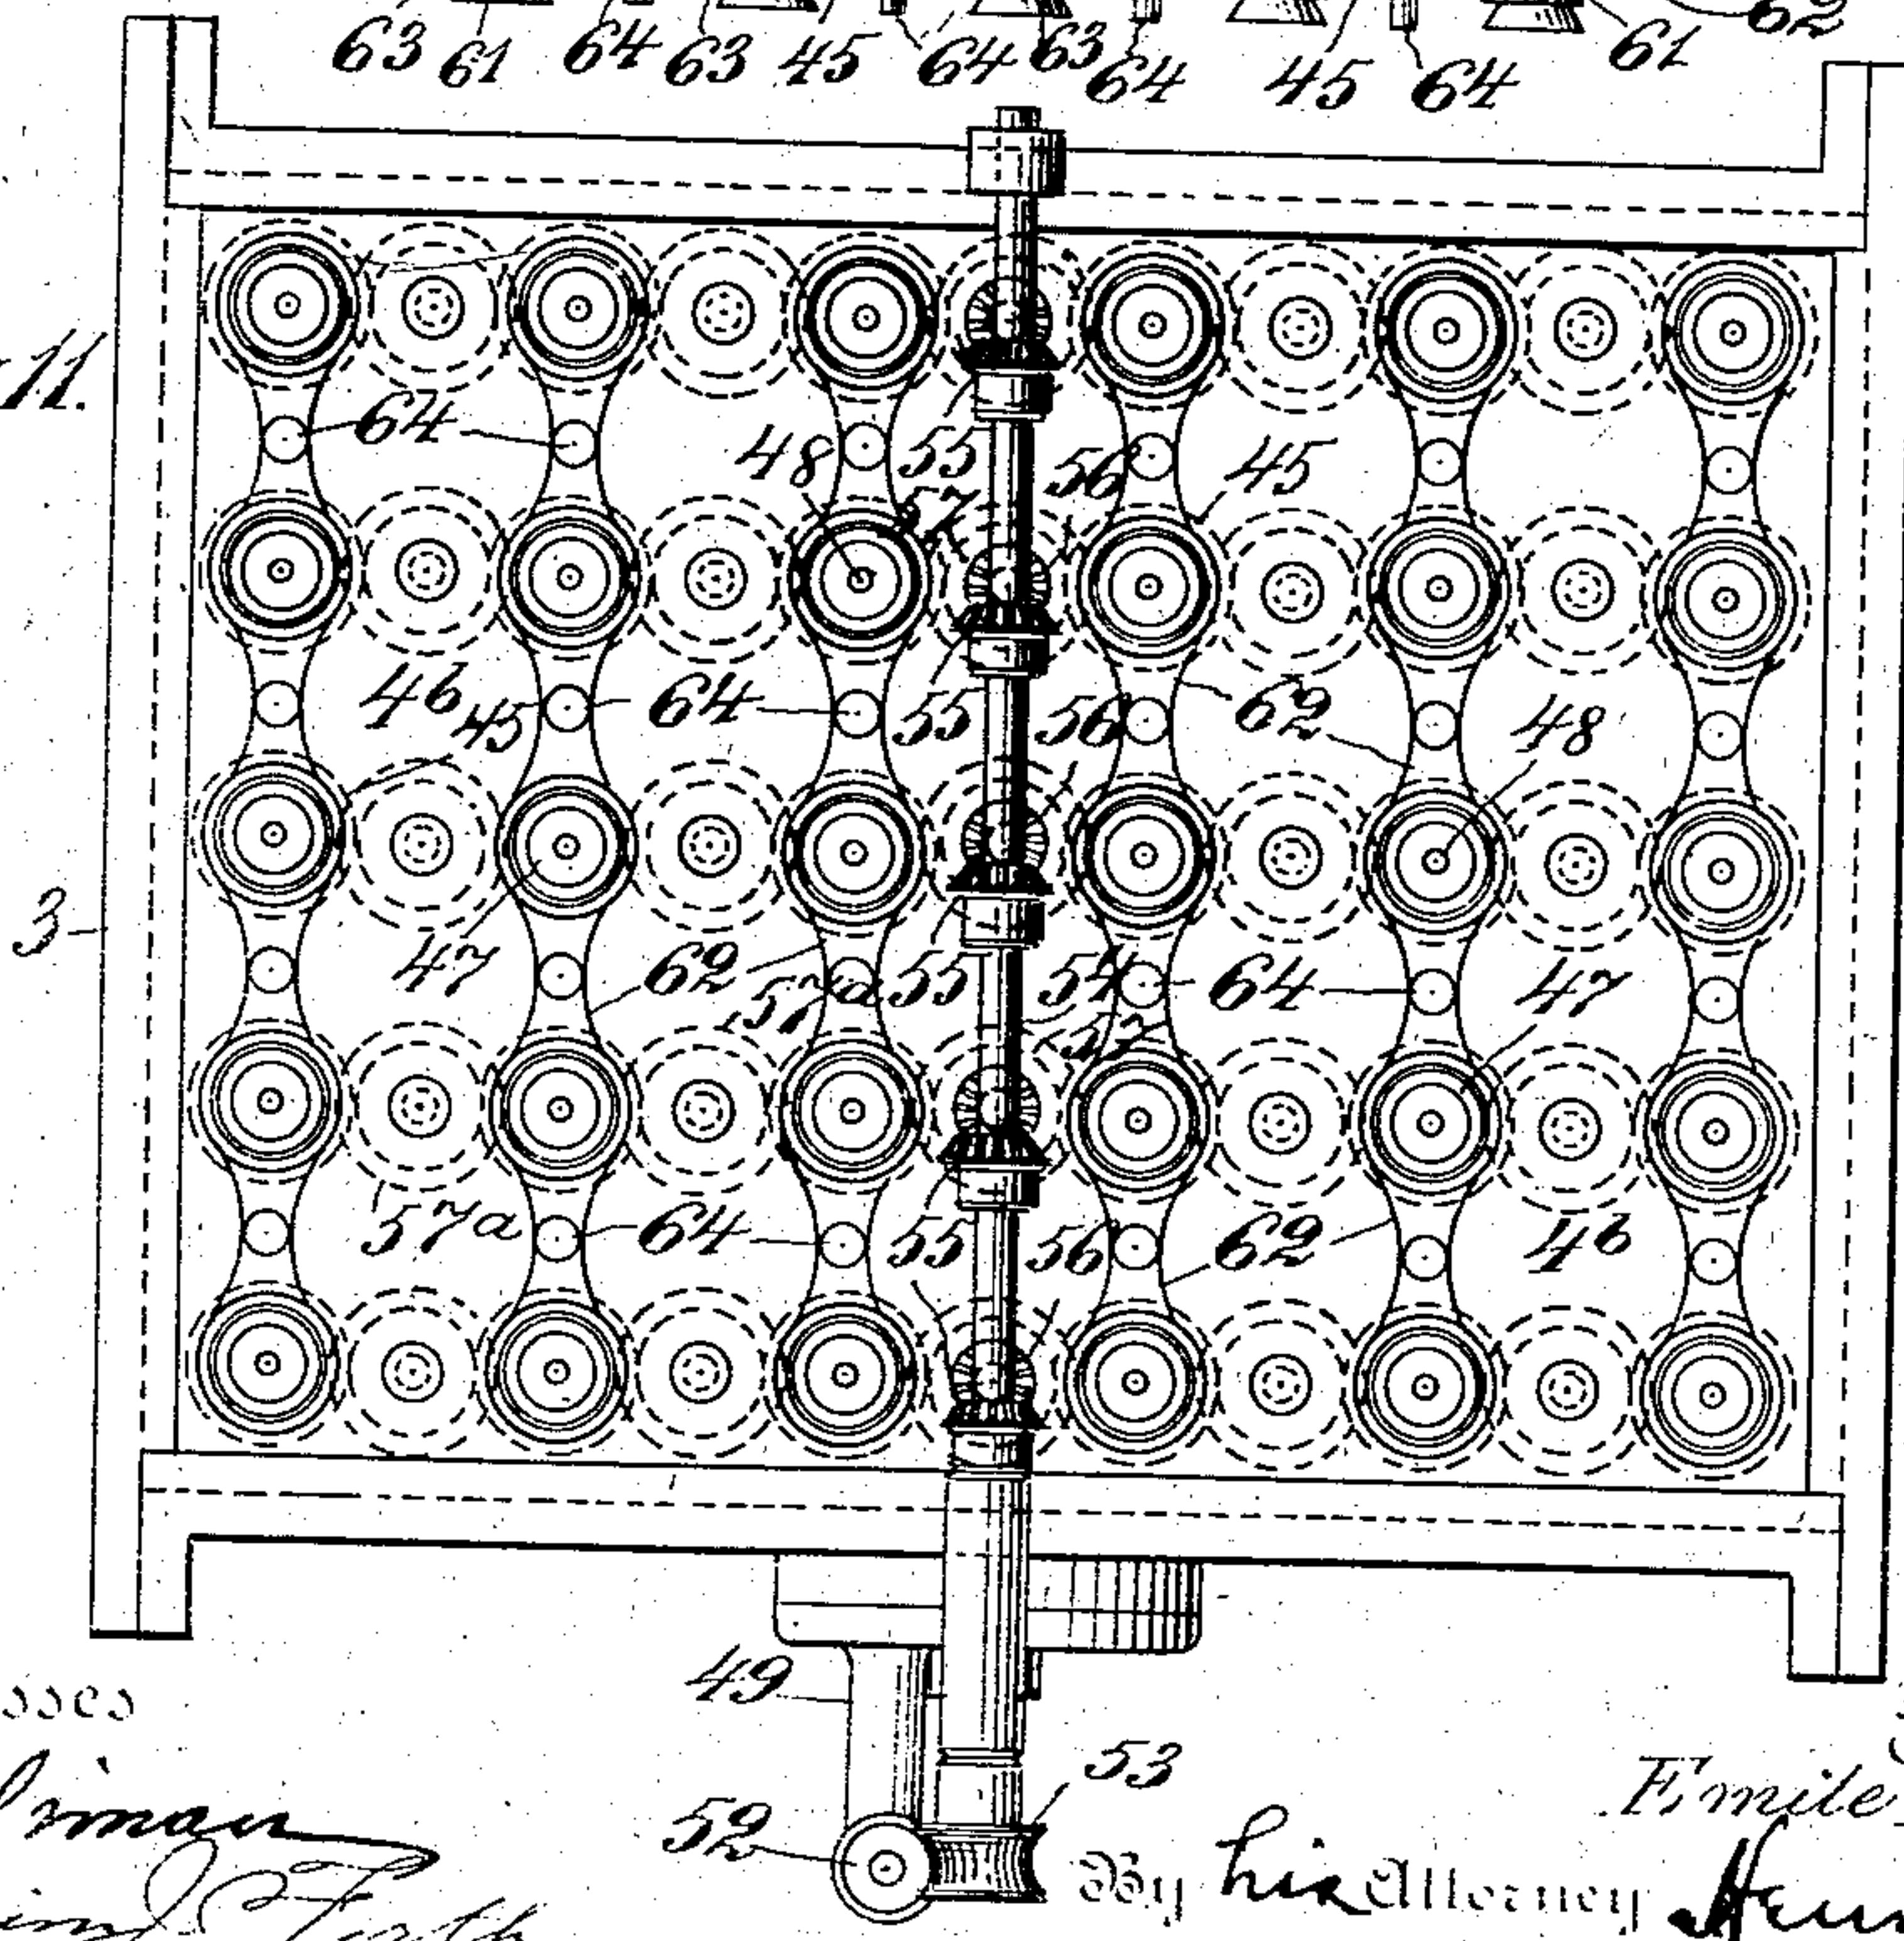 62
63 61 64 63 45 64 63 64 45 64 61
11.
64
48 55 56 45
57
46 45 64 55 56 62 48
3
47 62 57a 55 54 64 47
53
57a 64 55 56 62 46
49
53
52
Emile
By his Attorney